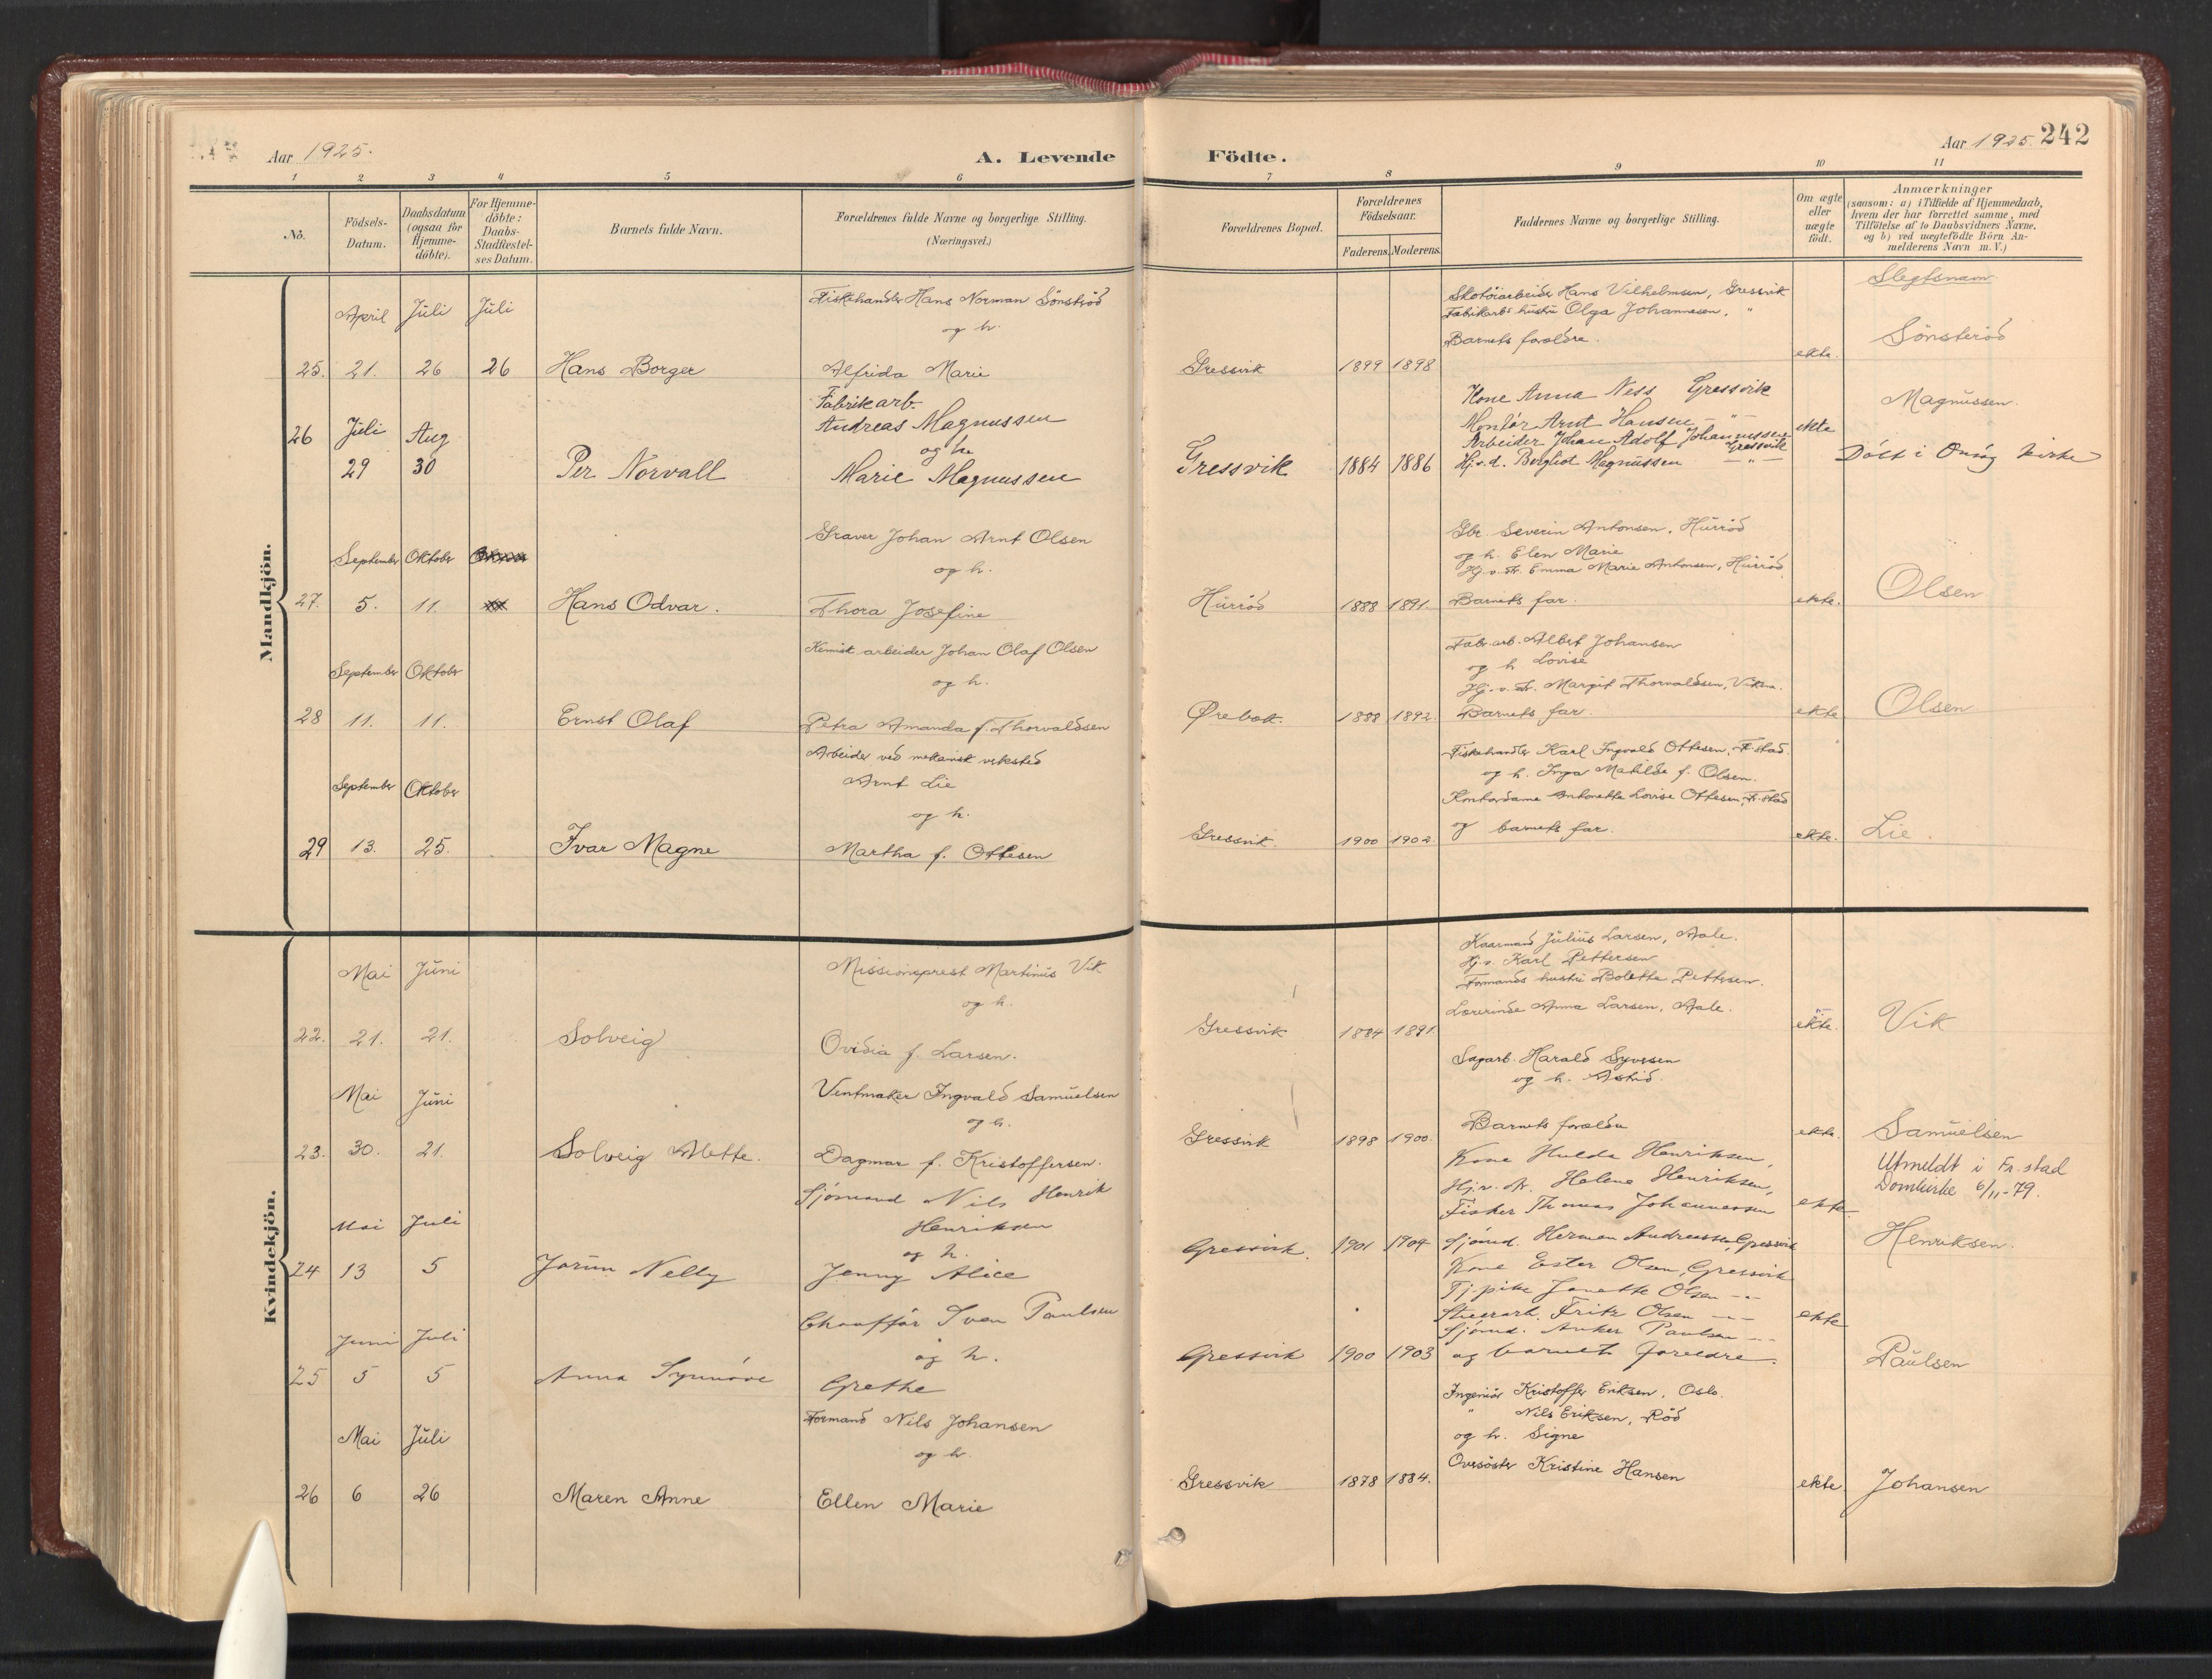 Aar 1925.
A. Levende
Födte.
Aar 1925. 242
1 2 3 4 5 6 7 8 9 10 11
No.
Födsels-
Datum.
Daabsdatum
(ogsaa for
Hjemme-
döbte).
For Hjemme-
döbte:
Daabs-
Stadfæstel-
ses Datum.
Barnets fulde Navn.
Forældrenes fulde Navne og borgerlige Stilling.
(Næringsvei.)
Forældrenes Bopæl.
Forældrenes
Födselsaar.
Faderens. Moderens.
Faddernes Navne og borgerlige Stilling.
Om ægte
eller
uægte
födt.
Anmærkninger
(saasom: a) i Tilfælde af Hjemmedaab,
hvem der har forrettet samme, med
Tilföielse af to Daabsvidners Navne,
og b) ved uægtefödte Börn An-
melderens Navn m. V.)
Mandkjön.
Slegtsnavn
April Juli Juli
Fiskehandler Hans Norman Sönsteröd
og h.
25. 21. 26 26 Hans Borger
Alfrida Marie
Gressvik 1899 1898
Skotöiarbeider Hans Vilhelmsen, Gressvik
Fabrikarbs hustru Olga Johannesen. "
Barnets foreldre.
ekte.
Sönsteröd
26 Juli Aug
29 30
Per Norvall
Fabrikarb.
Andreas Magnussen
og h
Marie Magnussen
Gressvik 1884 1886
Kone Anna Ness Gressvik
Montör Arnt Hansen — " —
Arbeider Johan Adolf Johannessen
Gressvik
Hj.v.d. Bergliot Magnussen — " —
ekte
Magnussen.
Dôbt i Onsôy kirke
September Oktober
27. 5. 11. Hans Odvar.
Graver Johan Arnt Olsen
og h.
Thora Josefine
Hurröd 1888 1891.
Gbr. Severin Antonsen, Hurröd
og h. Elen Marie
Hj. v. dr. Emma Marie Antonsen, Hurröd
Barnets far.
ekte.
Olsen
September Oktober
28 11. 11. Ernst Olaf
Kemisk arbeider Johan Olaf Olsen
og h.
Petra Amanda f. Thorvaldsen
Ørebæk. 1888 1892.
Fabr. arb. Albert Johansen
og h Lovise
Hj. v. dr. Margit Thorvaldsen, Viken.
Barnets far.
ekte
Olsen
September Oktober
29 13. 25. Ivar Magne
Arbeider ved mekanisk verksted
Arnt Lie
og h.
Martha f. Ottesen
Gressvik. 1900 1902.
Fiskehandler Karl Ingvald Ottesen, F.stad.
og h. Inga Matilde f. Olsen.
Kontordame Antonette Lovise Ottesen, Fr.stad
og barnets far.
ekte.
Lie.
Kvindekjön.
Mai Juni
22. 21. 21. Solveig
Missionsprest Martinus Vik
og h.
Ovidia f. Larsen.
Gressvik 1884 1891.
Kaarmand Julius Larsen, Aale.
Hj. v. Karl Pettersen
Formands hustru Bolette Pettersen.
Lærerinde Anna Larsen, Aale.
ekte.
Vik
Mai Juni
23. 30. 21. Solveig Alette.
Ventmaker Ingvald Samuelsen
og h.
Dagmar f. Kristoffersen.
Gressvik 1898 1900.
Sagarb. Harald Syversen
og h. Astrid.
Barnets foreldre
ekte.
Samuelsen
Utmeldt i Fr.stad
Domkirke 6/11-79.
Mai Juli
24 13 5 Jorun Nelly
Sjömand Nils Henrik
Henriksen
og h.
Jenny Alice
Gressvik. 1901 1904
Kone Hulda Henriksen,
Hj.v. dr. Helene Henriksen,
Fisker Thomas Johannessen
Sjömd. Herman Andreassen, Gressvik
ekte
Henriksen.
Juni Juli
25 5 5 Anna Synnöve
Chaufför Sven Paulsen
og h.
Grethe
Gressvik 1900 1903
Kone Ester Olsen, Gressvik
Tj.pike Janette Olsen — " —
Fritz Olsen — " —
Sjömd. Anker Paulsen — " —
og barnets foreldre.
ekte
Paulsen
Mai Juli
26 6 26 Maren Anne
Formand Nils Johansen
og h.
Ellen Marie
Gressvik 1878 1884.
Ingeniör Kristoffer Eriksen, Oslo.
" Nils Eriksen, Röd
og h. Signe
Oversöster Kristine Hansen
ekte
Johansen